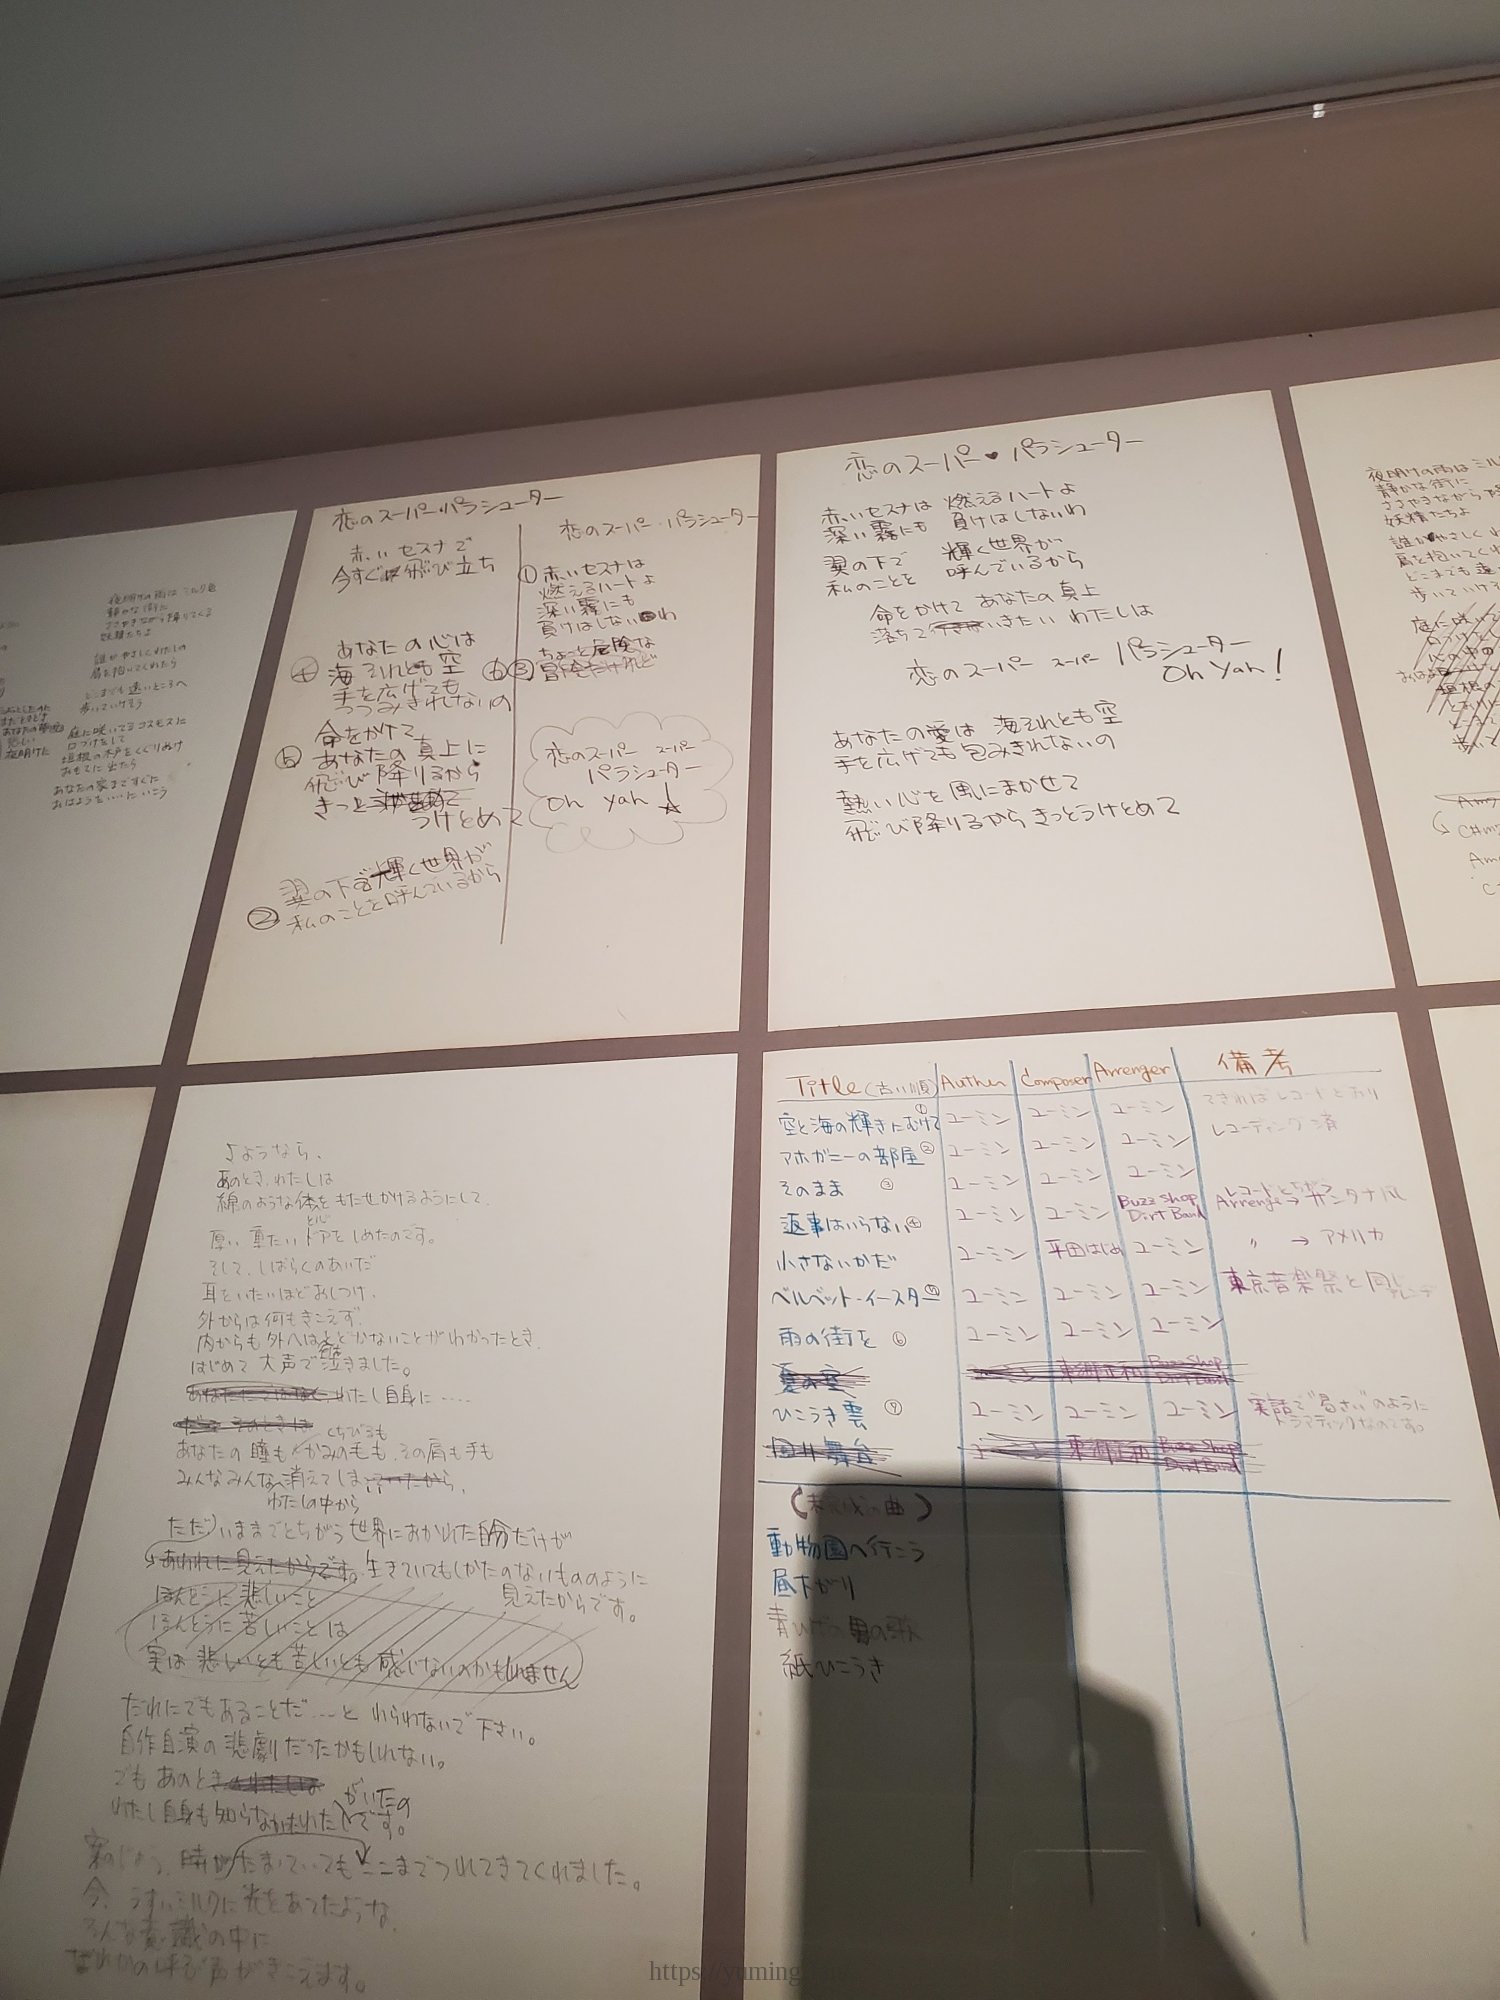 夜明けの雨はミルク色
静かな街に
ささやきながら降りてくる
妖精たちよ
誰かやさしくわたしの
肩を抱いてくれたら
どこまでも遠いところへ
歩いていけそう
庭に咲いてるコスモスに
口づけをして
垣根の木戸をくぐりぬけ
おもてに出たら
あなたの家まですぐに
おはようを‥‥いいにいこう
夜明けに
恋のスーパー・パラシューター
赤いセスナで
今すぐ飛び立ち
あなたの心は
④海それとも空
手を広げても
つつみきれないの
⑤命をかけて
あなたの真上に
飛び降りるから
きっと
うけとめて
翼の下で輝く世界が
②私のことを呼んでいるから
恋のスーパー・パラシューター
①赤いセスナは
燃えるハートよ
深い霧にも
負けはしないわ
ちょっと危険な
⑥③冒険だけれど
恋のスーパー スーパー
パラシューター
Oh Yah!
恋のスーパー♥パラシューター
赤いセスナは 燃えるハートよ
深い霧にも 負けはしないわ
翼の下で 輝く世界が
私のことを 呼んでいるから
命をかけて あなたの真上
落ちていきたい わたしは
恋のスーパー スーパー パラシューター
Oh Yah!
あなたの愛は 海それとも空
手を広げても包みきれないの
熱い心を風にまかせて
飛び降りるからきっとうけとめて
夜明けの雨はミル
静かな街に
ささやきながら降
妖精たちよ
誰かやさしくわ
肩を抱いてくれ
どこまでも遠
歩いていけそ
庭に咲いて
口づけを
心の中の
垣根の
さようなら、
あのとき、わたしは
綿のような体をもたせかけるようにして、
と心
厚い重たいドアをしめたのです。
そして、しばらくのあいだ
耳をいたいほどおしつけ、
外からは何もきこえず
内からも外へはとどかないことがわかったとき、
はじめて大声で泣きました。
わたし自身に‥‥
そのときは
くちびるも
あなたの瞳もかみの毛も、その肩も手も
みんなみんな消えてしまったから、
わたしの中から
ただ いままでとちがう世界におかれた自分だけが
あわれに見えたからです。生きていてもしかたのないもののように
見えたからです。
ほんとうに悲しいこと
ほんとうに苦しいことは
実は悲しいとも苦しいとも感じないのかもしれません
だれにでもあることだ‥‥と わらわないで下さい。
自作自演の悲劇だったかもしれない。
でもあのとき わたしは
わたし自身も知らなかったわたしがいたのです。
ここまでつれてきてくれました。
今、うすいミルクに光をあてたような
そんな意識の中に
だれかの呼ぶ声がきこえます。
Title(古い順) Auther Composer Arrenger 備考
空と海の輝きにむけて① ユーミン ユーミン ユーミン できればレコードどおり
マホガニーの部屋② ユーミン ユーミン ユーミン レコーディング済
そのまま③ ユーミン ユーミン ユーミン
返事はいらない④ ユーミン ユーミン Buzz Shop Dirt Band レコードとちがう Arrenge→サンタナバリ
小さないかだ ユーミン 平田はじめ ユーミン 〃 → アメリカ
ベルベット・イースター⑤ ユーミン ユーミン ユーミン 東京音楽祭と同じアレンジ
雨の街を⑥ ユーミン ユーミン ユーミン
夏の空 Buzz Shop Dirt Band
ひこうき雲⑦ ユーミン ユーミン ユーミン 実話で“局さい”のように ドラマティックなのです。
回り舞台 Buzz Shop Dirt Band
(未完成の曲)
動物園へ行こう
昼下がり
青ひげの男の歌
紙ひこうき